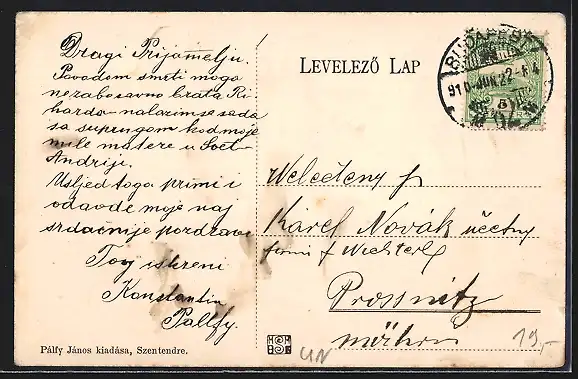 Dragi Prijatelju.
Povodom smrti moga
nezaboravno brata Ri
harda - nalazim se sada
sa suprugom kod moje
mile matere u Svet-
Andriji.
Usljed toga primi i
odavde moje naj
srdačnije pozdrave
Tvoj iskreni
Konstantin
Pálffy.
Pálfy János kiadása, Szentendre.
LEVELEZŐ LAP
BUDAPEST
910 JUN. 22
Karel Novák účetny
firmi f Wichterl
Prossnitz
mähren
UN
19,-